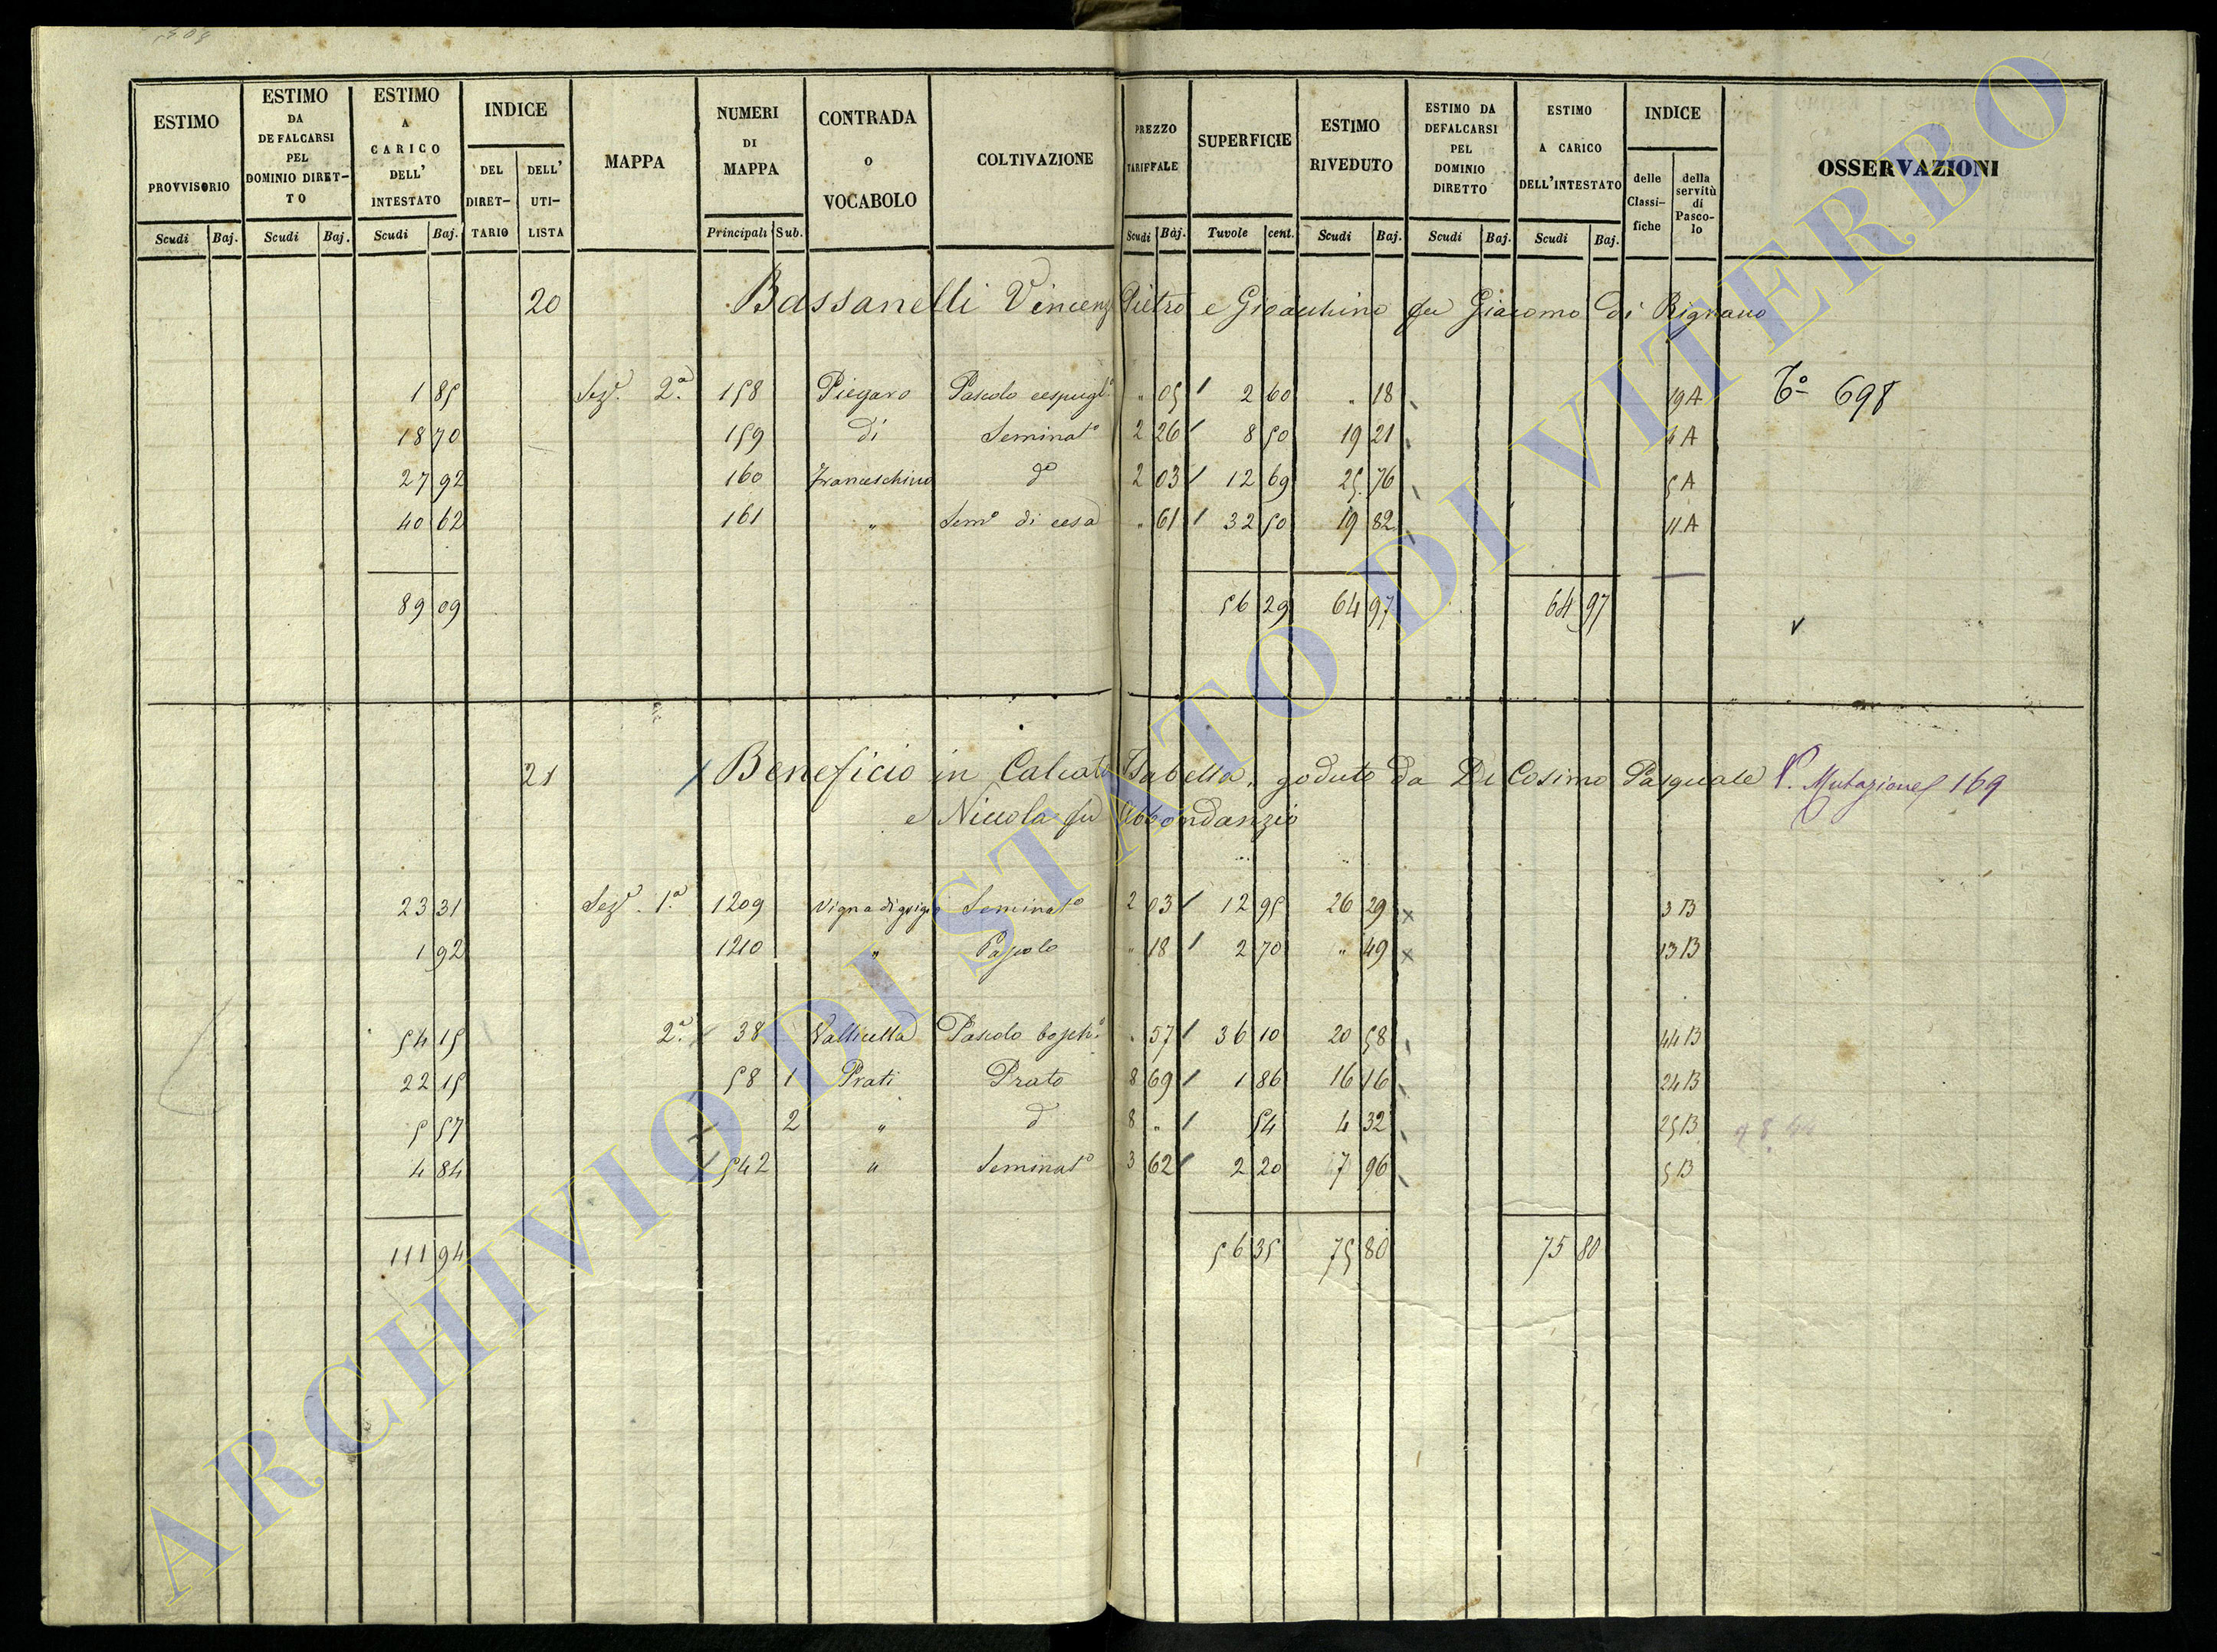 ESTIMO PROVVISORIO | ESTIMO DA DEFALCARSI PEL DOMINIO DIRET-TO | ESTIMO A CARICO DELL' INTESTATO | INDICE | MAPPA | NUMERI DI MAPPA | CONTRADA O VOCABOLO | COLTIVAZIONE | PREZZO TARIFFALE | SUPERFICIE | ESTIMO RIVEDUTO | ESTIMO DA DEFALCARSI PEL DOMINIO DIRETTO | ESTIMO A CARICO DELL'INTESTATO | INDICE | OSSERVAZIONI
DEL DIRET-TARIO | DELL' UTI-LISTA | delle Classi-fiche | della servitù di Pasco-lo
Scudi | Baj. | Scudi | Baj. | Scudi | Baj. | Principali | Sub. | Scudi | Baj. | Tavole | cent. | Scudi | Baj. | Scudi | Baj. | Scudi | Baj.
20 Bassanelli Vincenz Pietro e Gioacchino fu Giacomo di Rignano
1 85 Sez.e 2.a 158 Piegaro Pascolo cespugl.o " 05 2 60 " 18 19 A To 698
18 70 159 di Seminato 2 26 8 50 19 21 4 A
27 92 160 Franceschino do 2 03 12 69 25 76 5 A
40 62 161 " Semo di cesa " 61 32 50 19 82 11 A
89 09 56 29 64 97 64 97
21 Beneficio in Calcata Isabella, goduto da Di Cosimo Pasquale V. Mutazione 169
e Niccola fu Abbondanzio
23 31 Sez.e 1.a 1209 Vigna di Seminato 2 03 12 95 26 29 3 B
1 92 1210 " Pascolo " 18 2 70 " 49 13 B
54 15 2.a 38 Vallicella Pascolo " 57 36 10 20 58 44 B
22 15 58 1 Prati Prato 8 69 1 86 16 16 24 B
5 57 2 " d 8 " 54 4 32 25 B
4 84 542 " Seminato 3 62 2 20 7 96 5 B
111 94 56 35 75 80 75 80
ARCHIVIO DI STATO DI VITERBO